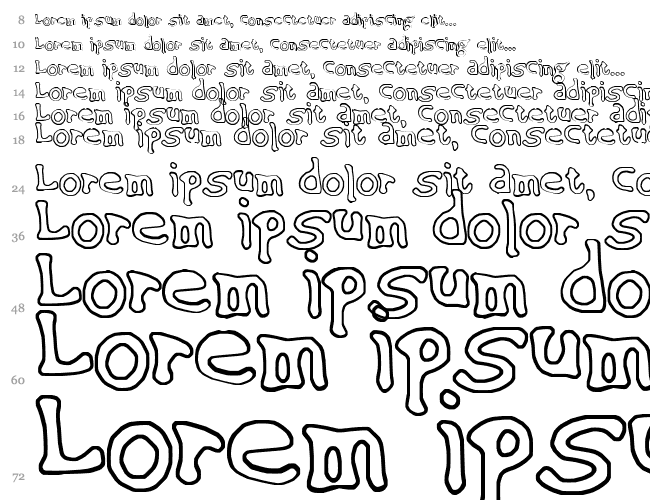 8 Lorem ipsum dolor sit amet, consectetuer adipiscing elit...
10 Lorem ipsum dolor sit amet, consectetuer adipiscing elit...
12 Lorem ipsum dolor sit amet, consectetuer adipiscing elit...
14 Lorem ipsum dolor sit amet, Consectetuer adipiscin
16 Lorem ipsum dolor sit amet, Consectetuer adipi
18 Lorem ipsum dolor sit amet, Consectetu
24 Lorem ipsum dolor sit amet, Co
36 Lorem ipsum dolor s
48 Lorem ipsum do
60 Lorem ipsum
72 Lorem ipsu